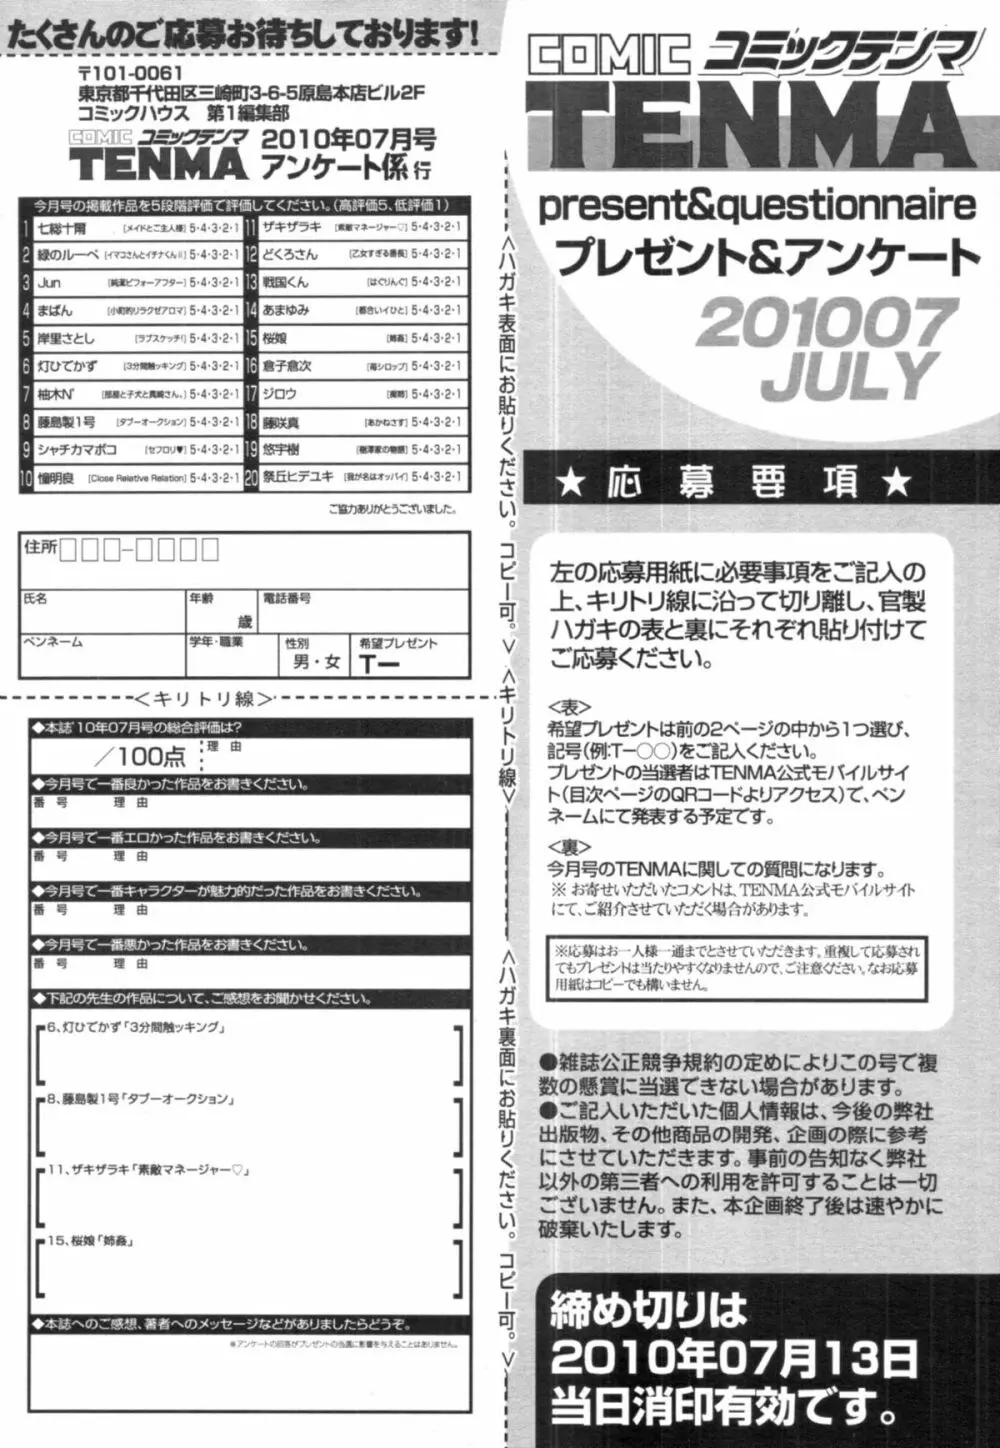 たくさんのご応募お待ちしております!
〒101-0061
東京都千代田区三崎町3-6-5原島本店ビル2F
コミックハウス 第1編集部
COMIC コミックテンマ
TENMA
2010年07月号
アンケート係 行
今月号の掲載作品を5段階評価で評価してください。(高評価5、低評価1)
1 七総十爾 [メイドとご主人様] 5・4・3・2・1
2 緑のルーペ [イマコさんとイチナくんⅡ] 5・4・3・2・1
3 Jun [純潔ビフォーアフター] 5・4・3・2・1
4 まばん [小町的リラクゼアロマ] 5・4・3・2・1
5 岸里さとし [ラブスケッチ!] 5・4・3・2・1
6 灯ひでかず [3分間触ッキング] 5・4・3・2・1
7 柚木N' [部屋と子犬と真崎さん。] 5・4・3・2・1
8 藤島製1号 [タブーオークション] 5・4・3・2・1
9 シャチカマボコ [セフロリ♥] 5・4・3・2・1
10 憧明良 [Close Relative Relation] 5・4・3・2・1
11 ザキザラキ [素敵マネージャー♡] 5・4・3・2・1
12 どくろさん [乙女すぎる番長] 5・4・3・2・1
13 戦国くん [はぐりんぐ] 5・4・3・2・1
14 あまゆみ [都合イイひと] 5・4・3・2・1
15 桜娘 [姉姦] 5・4・3・2・1
16 倉子倉次 [苺シロップ] 5・4・3・2・1
17 ジロウ [魔姉] 5・4・3・2・1
18 藤咲真 [あかねさす] 5・4・3・2・1
19 悠宇樹 [樹澤家の物語] 5・4・3・2・1
20 祭丘ヒデユキ [我が名はオッパイ] 5・4・3・2・1
ご協力ありがとうございました。
住所 □□□-□□□□
氏名
年齢
歳
電話番号
ペンネーム
学年・職業
性別
男・女
希望プレゼント
T-
<キリトリ線>
◆本誌'10年07月号の総合評価は?
/100点
理由
◆今月号で一番良かった作品をお書きください。
番号 理由
◆今月号で一番エロかった作品をお書きください。
番号 理由
◆今月号で一番キャラクターが魅力的だった作品をお書きください。
番号 理由
◆今月号で一番悪かった作品をお書きください。
番号 理由
◆下記の先生の作品について、ご感想をお聞かせください。
6、灯ひでかず「3分間触ッキング」
8、藤島製1号「タブーオークション」
11、ザキザラキ「素敵マネージャー♡」
15、桜娘「姉姦」
◆本誌へのご感想、著者へのメッセージなどがありましたらどうぞ。
※アンケートの回答がプレゼントの当選に影響を与えることはありません。
<ハガキ表面にお貼りください。コピー可。>
<キリトリ線>
<ハガキ裏面にお貼りください。コピー可。>
COMIC コミックテンマ
TENMA
present&questionnaire
プレゼント&アンケート
201007
JULY
★応募要項★
左の応募用紙に必要事項をご記入の
上、キリトリ線に沿って切り離し、官製
ハガキの表と裏にそれぞれ貼り付けて
ご応募ください。
<表>
希望プレゼントは前の2ページの中から1つ選び、
記号(例:T-○○)をご記入ください。
プレゼントの当選者はTENMA公式モバイルサイ
ト(目次ページのQRコードよりアクセス)で、ペン
ネームにて発表する予定です。
<裏>
今月号のTENMAに関しての質問になります。
※お寄せいただいたコメントは、TENMA公式モバイルサイト
にて、ご紹介させていただく場合があります。
※応募はお一人様一通までとさせていただきます。重複して応募され
てもプレゼントは当たりやすくなりませんので、ご注意ください。なお応募
用紙はコピーでも構いません。
●雑誌公正競争規約の定めによりこの号で複
数の懸賞に当選できない場合があります。
●ご記入いただいた個人情報は、今後の弊社
出版物、その他商品の開発、企画の際に参考
にさせていただきます。事前の告知なく弊社
以外の第三者への利用を許可することは一切
ございません。また、本企画終了後は速やかに
破棄いたします。
締め切りは
2010年07月13日
当日消印有効です。